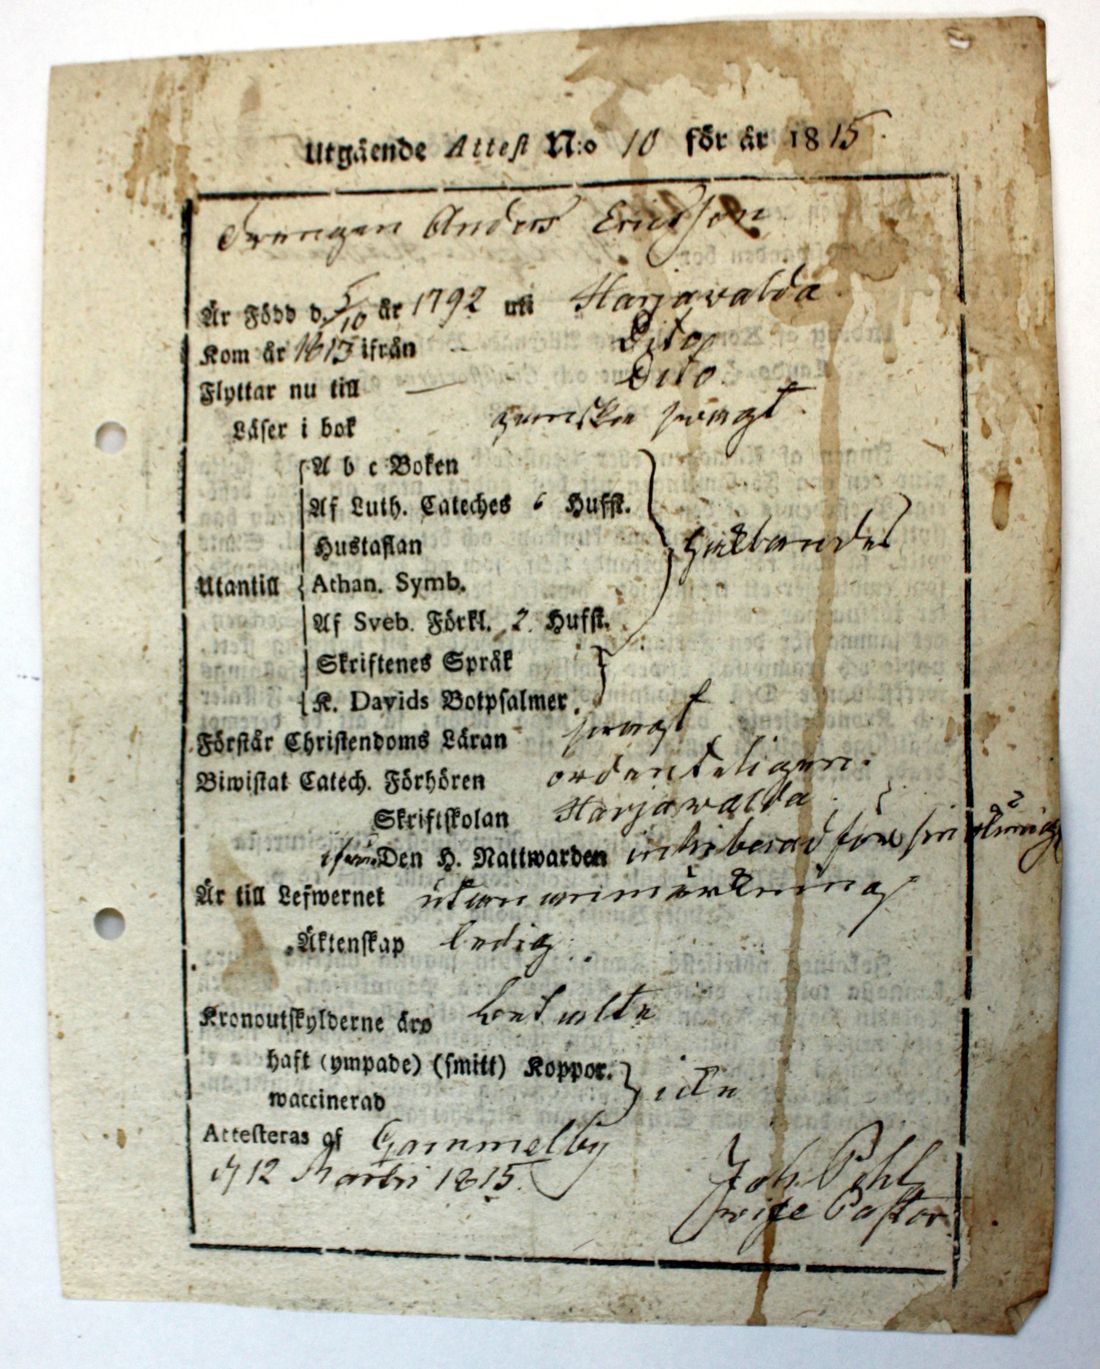 Utgående Attest N:o 10 för år 1815.
Drengen Anders Ericsson
Är Född d. 5/10 år 1792 uti Harjavalda.
Kom år 1815 ifrån Dito
Flyttar nu till — Dito.
Läser i bok ganska svagt.
A b c Boken
Af Luth. Cateches 6 Hufst.
Hustaflan
Utantill Athan. Symb.
Af Sveb. Förkl. 2 Hufst.
Skriftenes Språk
K. Davids Botpsalmer.
Förstår Christendoms Läran svagt
Biwistat Catech. Förhören ordenteligen.
Skriftskolan Harjavalda
ifrån Den H. Nattwarden för sin
Är till Lefwernet utan anmärkning
Äktenskap ledig.
Kronoutskylderne äro betalte
haft (ympade) (smitt) Koppor.
waccinerad
Attesteras af Gammelby
d 12 Martii 1815.
Joh. Pehl
vice Pastor